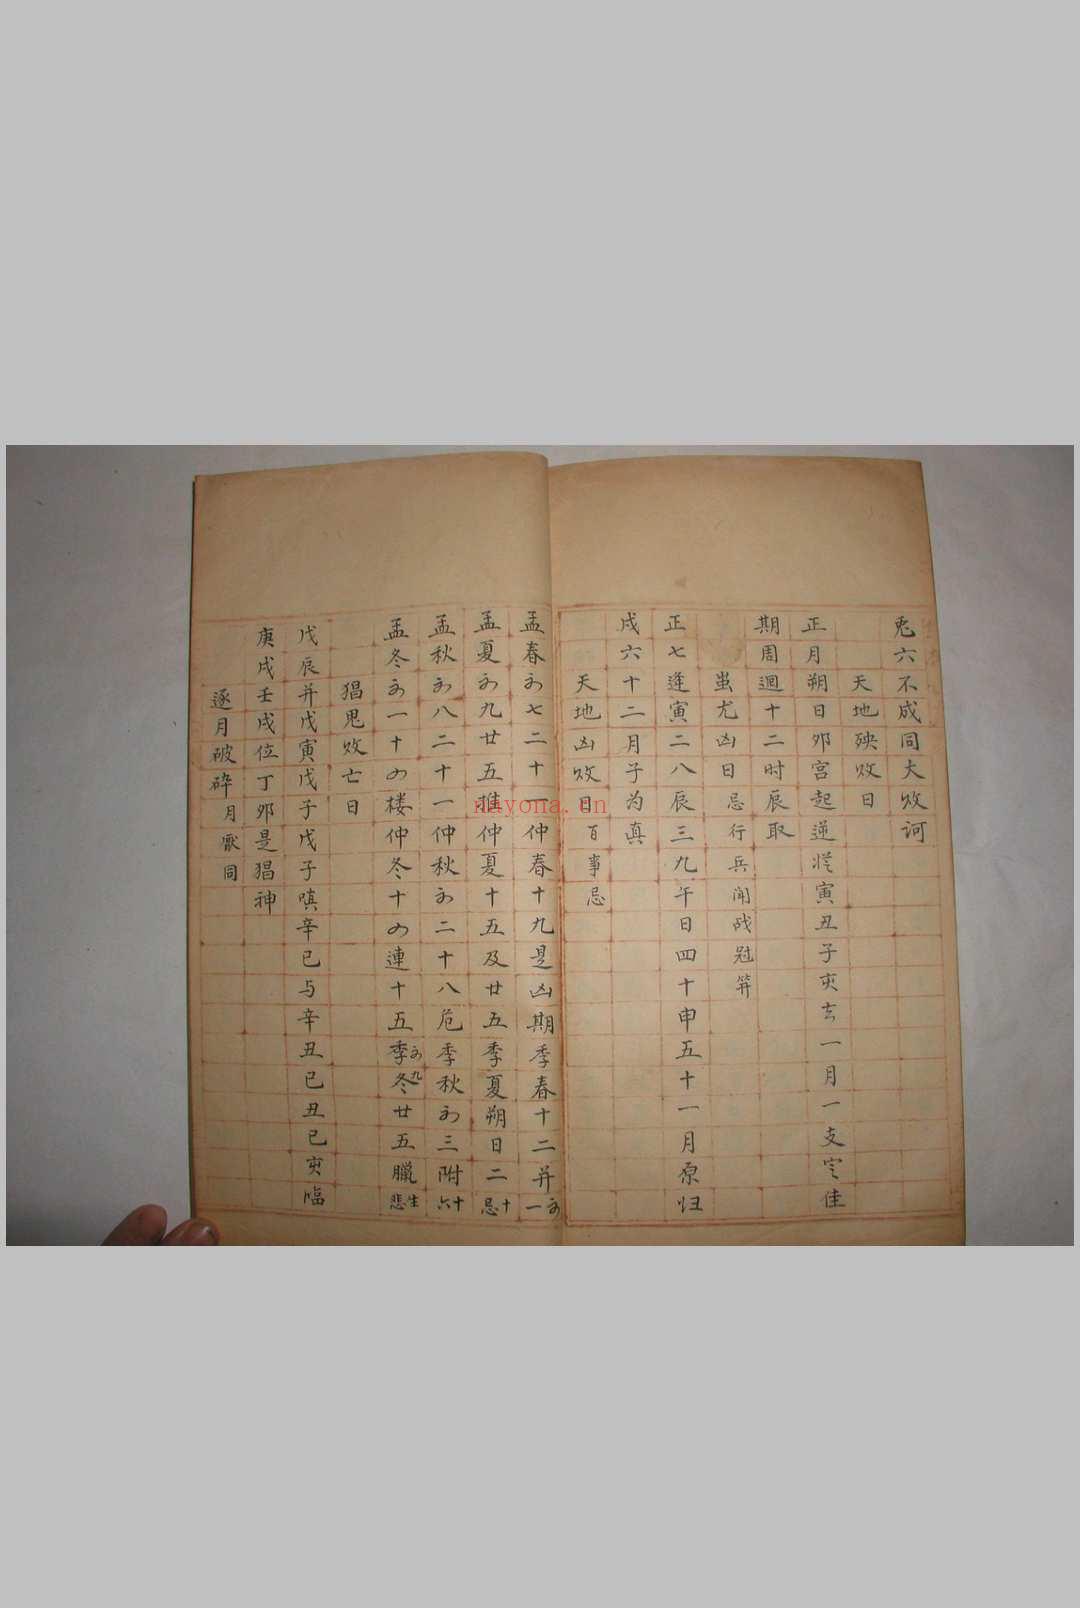 兎六不成同大敗訶
天地殃敗日
正月朔日夘宮起逆從寅丑子亥去一月一支定佳
期周迴十二时辰取
蚩尤凶日忌行兵闻战冠笄
正七逢寅二八辰三九午日四十申五十一月原归
戌六十二月子为真
天地凶敗日百事忌
孟春初七二十一仲春十九是凶期季春十二并初一
孟夏初九廿五推仲夏十五及廿五季夏朔日二十忌
孟秋初八二十一仲秋初二十八危季秋初三附十六
孟冬初一十四楼仲冬十四連十五季冬初九廿五臘生悲
猖鬼敗亡日
戊辰并戊寅戊子戊子嗔辛巳与辛丑已丑已亥臨
庚戌壬戌位丁夘是猖神
逐月破碎月厭同
nayona.cn